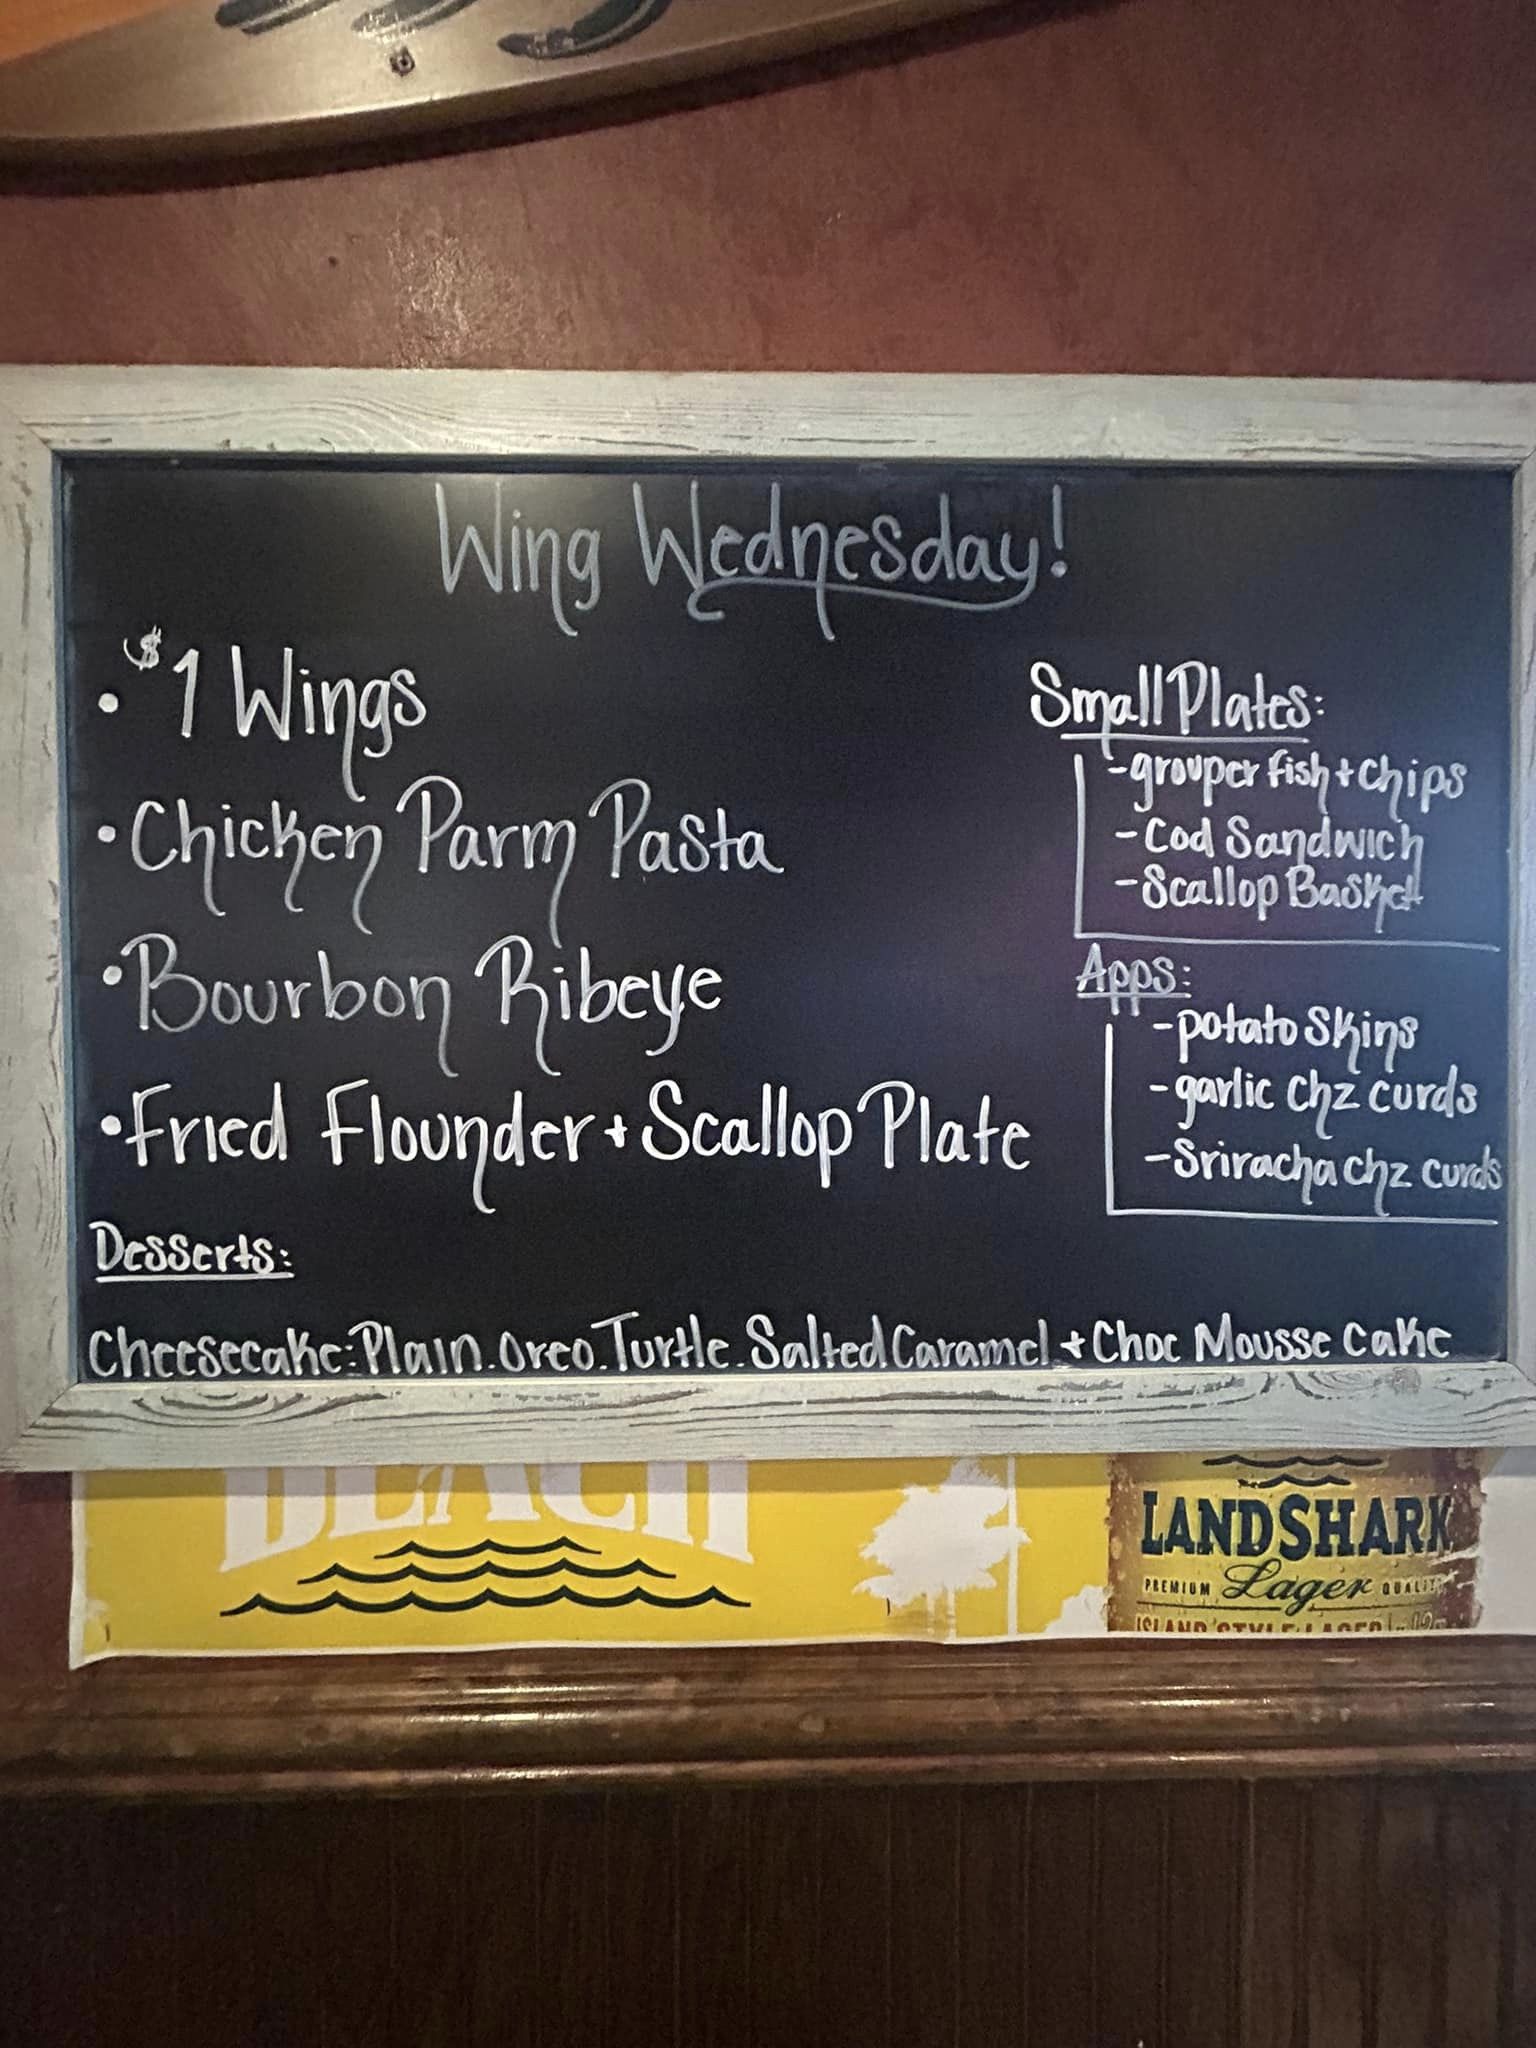 Wing Wednesday!
• $1 Wings
• Chicken Parm Pasta
• Bourbon Ribeye
• Fried Flounder + Scallop Plate
Small Plates:
- grouper fish + chips
- Cod Sandwich
- Scallop Basket
Apps:
- potato skins
- garlic chz curds
- Sriracha chz curds
Desserts:
Cheesecake: Plain. Oreo. Turtle. Salted Caramel + Choc Mousse Cake
BEACH
LANDSHARK
PREMIUM Lager QUALITY
ISLAND STYLE LAGER